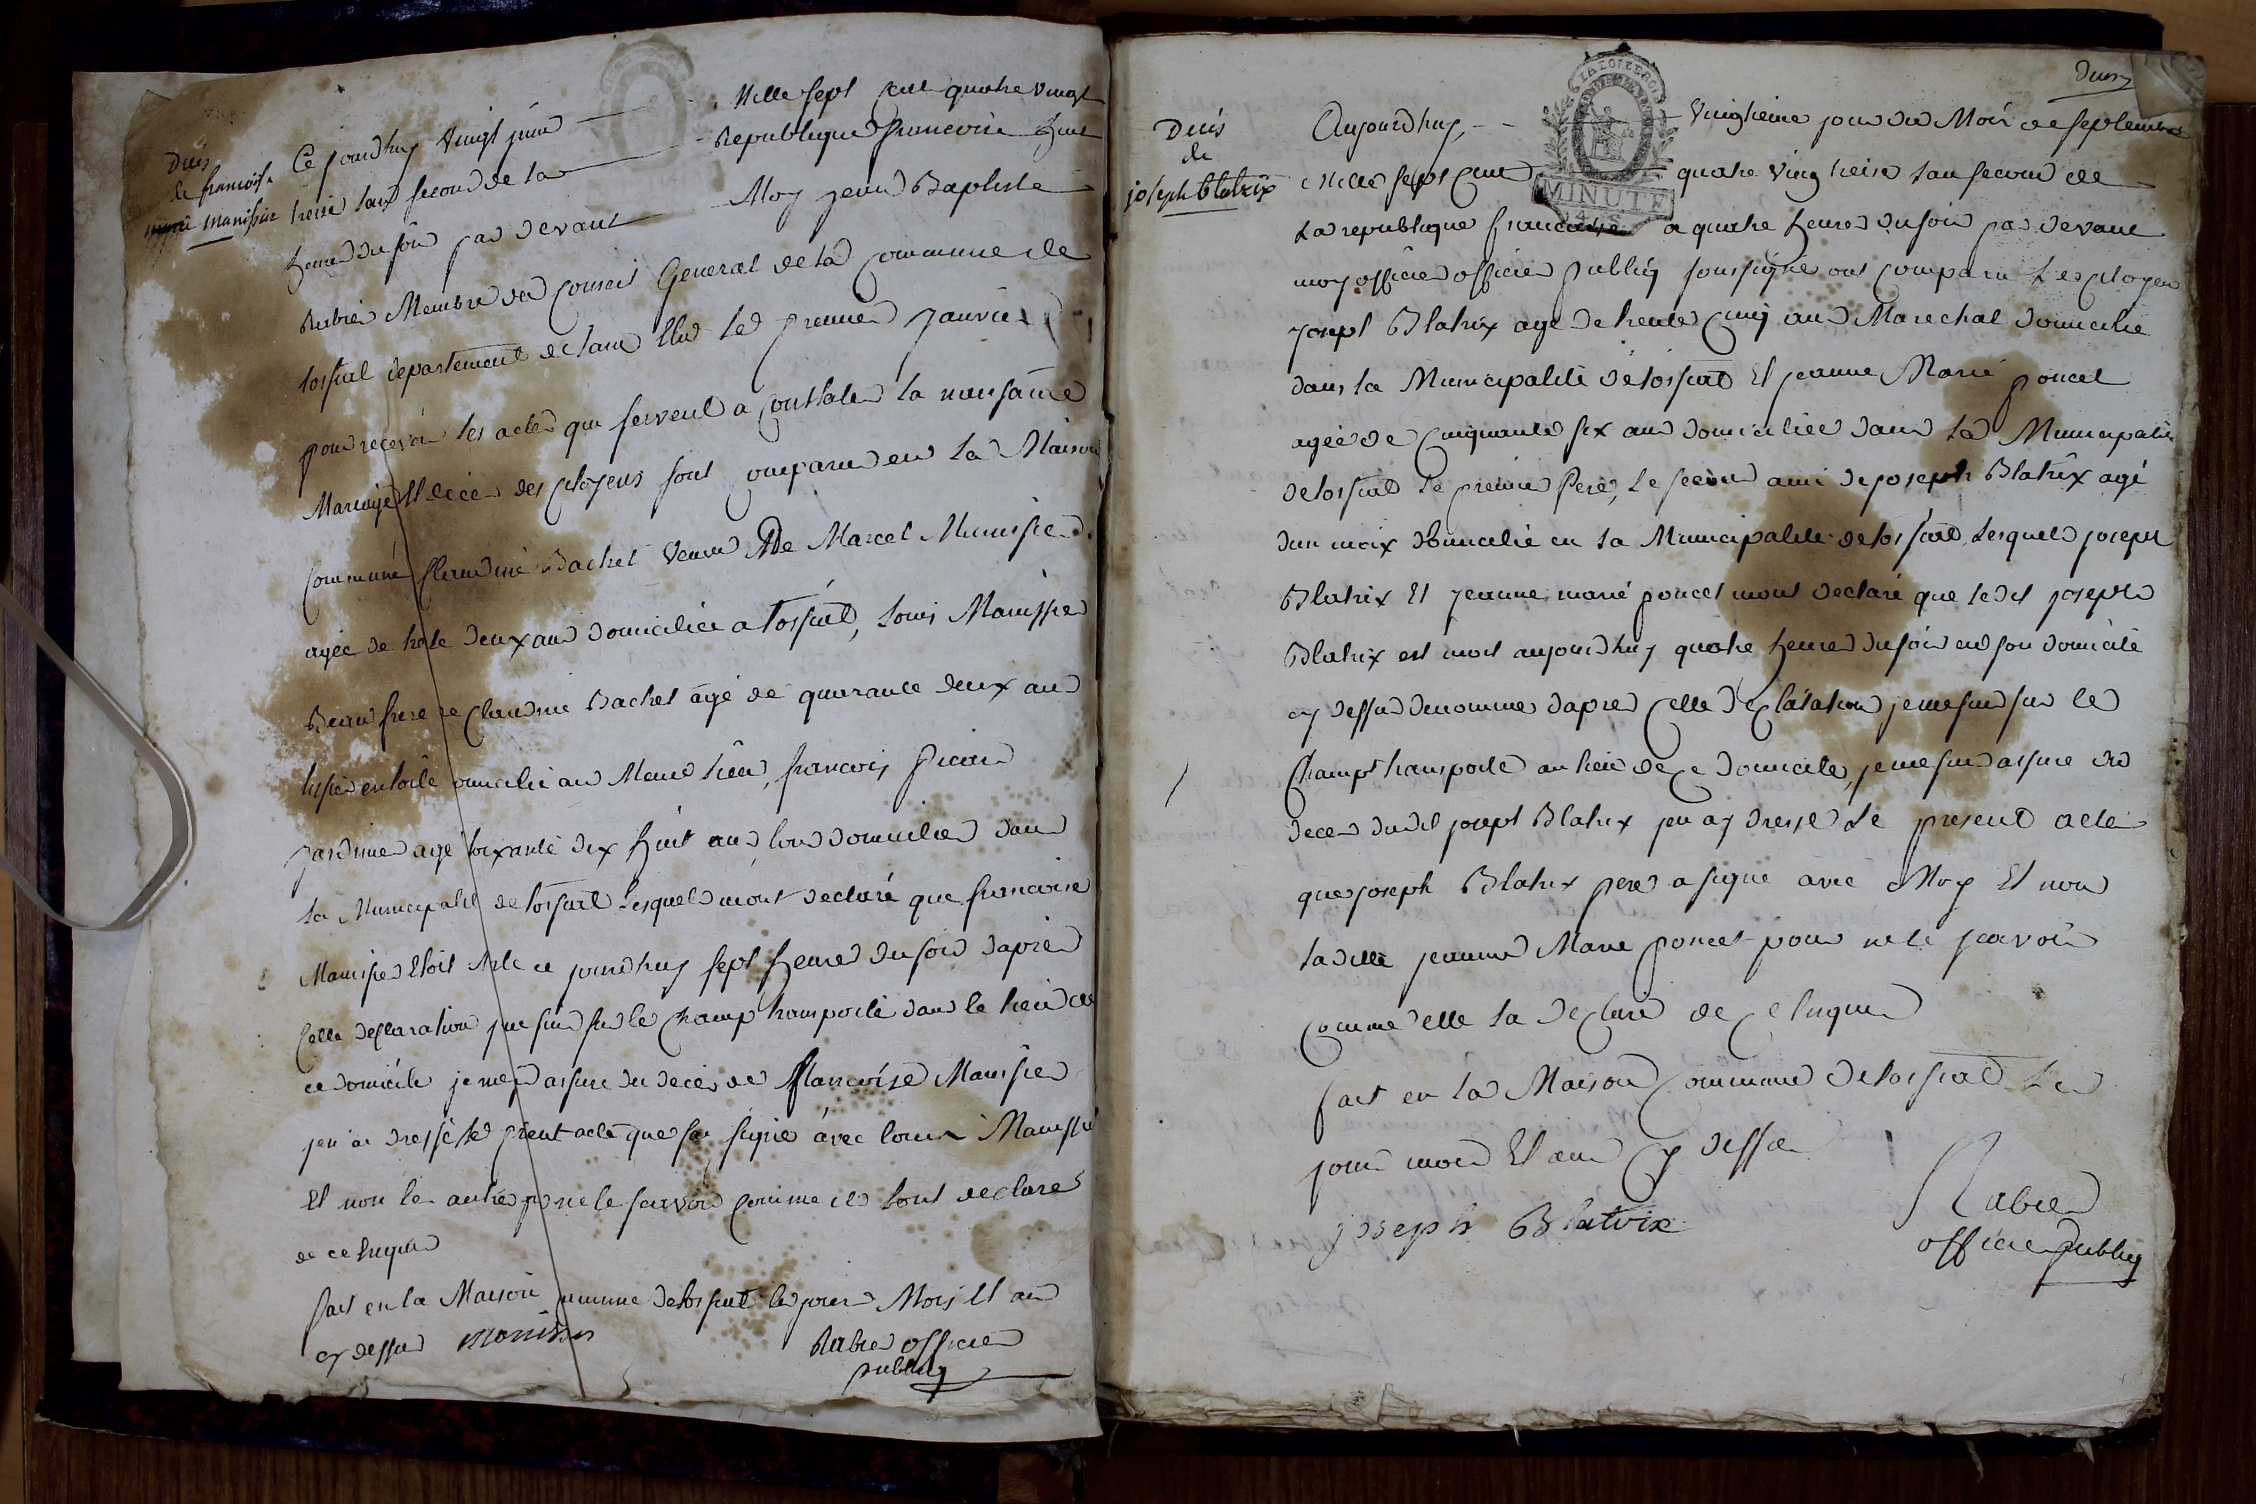 Deces
de francoise
manissier
Ce jourdhuy vingt juin Mille sept cent quatre vingt
treise l'an second de la Republique francoise huit
heures du soir par devant Moy jean Baptiste
Rubier Membre du Conseil General de la Commune de
tossiat departement de l'ain Elu le premier janvier
pour recevoir les actes qui servent a constater la naissance
Mariage Et deces des citoyens sont comparu en la Maison
Commune Claudine Bachet veuve de Marcel Manissier
agée de trente deux ans domiciliée a tossiat, Louis Manissier
Beau frere de Claudine Bachet agé de quarante deux ans
tissier en toile domicilié au Meme lieu, francois
jardinier agé soixante dix huit ans tous domicilies dans
la Municipalité de tossiat lesquels m'ont declaré que francoise
Manissier Etoit Morte ce jourdhuy sept heures du soir dapres
Cette declaration je me suis sur le Champ transporté dans le lieu de
ce domicile je me suis assure du deces de francoise Manissier
jen ai dressé le present acte que jai signé avec louis Manissier
Et non les autres pour ne le scavoir comme ils lont declarés
de ce Enquis
fait en la Maison commune de tossiat les jour Mois Et an
cy dessus manissier Rubier officier
publiq
Deces
de
joseph blatrix
Aujourdhuy vingtieme jour du Mois de septembre
Mille sept cent quatre vingt treise lan second de
LA LOI LE ROI
MINUTE
La republique francaise a quatre heures du soir par devant
moy officier officier publiq soussigné ont comparu Les Citoyens
joseph Blatrix agé de trente cinq ans Marechal domicilié
dans la Municipalité de tossiat Et jeanne Marie poncet
agée de cinquante six ans domiciliée dans la Municipalité
de tossiat le premier pere, le second ami de joseph Blatrix agé
dun mois domicilié en la Municipalité de tossiat lesquels joseph
Blatrix Et jeanne marie poncet mont declaré que ledit joseph
Blatrix est mort aujourdhuy quatre heures du soir en son domicile
cy dessus denommé dapres Cette declaration je me suis sur le
Champ transporté au lieu de ce domicile, je me suis assure du
deces dudit joseph Blatrix jen ay dressé Le present acte
que joseph Blatrix pere a signé avec Moy Et non
ladite jeanne Marie poncet pour ne le scavoir
Comme elle la declaré de ce Enquis
fait en la Maison Commune de tossiat Les
jour mois Et an cy dessus
joseph Blatrix Rubier
officier publiq